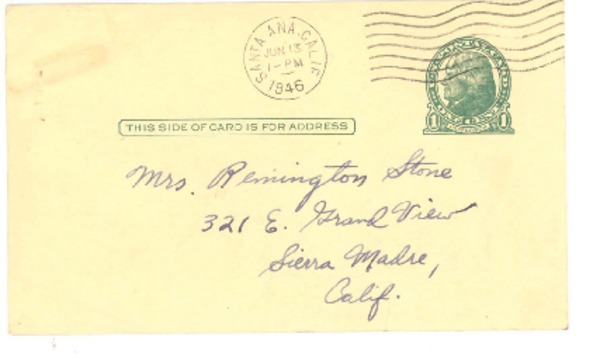 SANTA ANA, CALIF.
JUN 13
1-PM
1946
1 1
THIS SIDE OF CARD IS FOR ADDRESS
Mrs. Remington Stone
321 E. Grand View
Sierra Madre,
Calif.